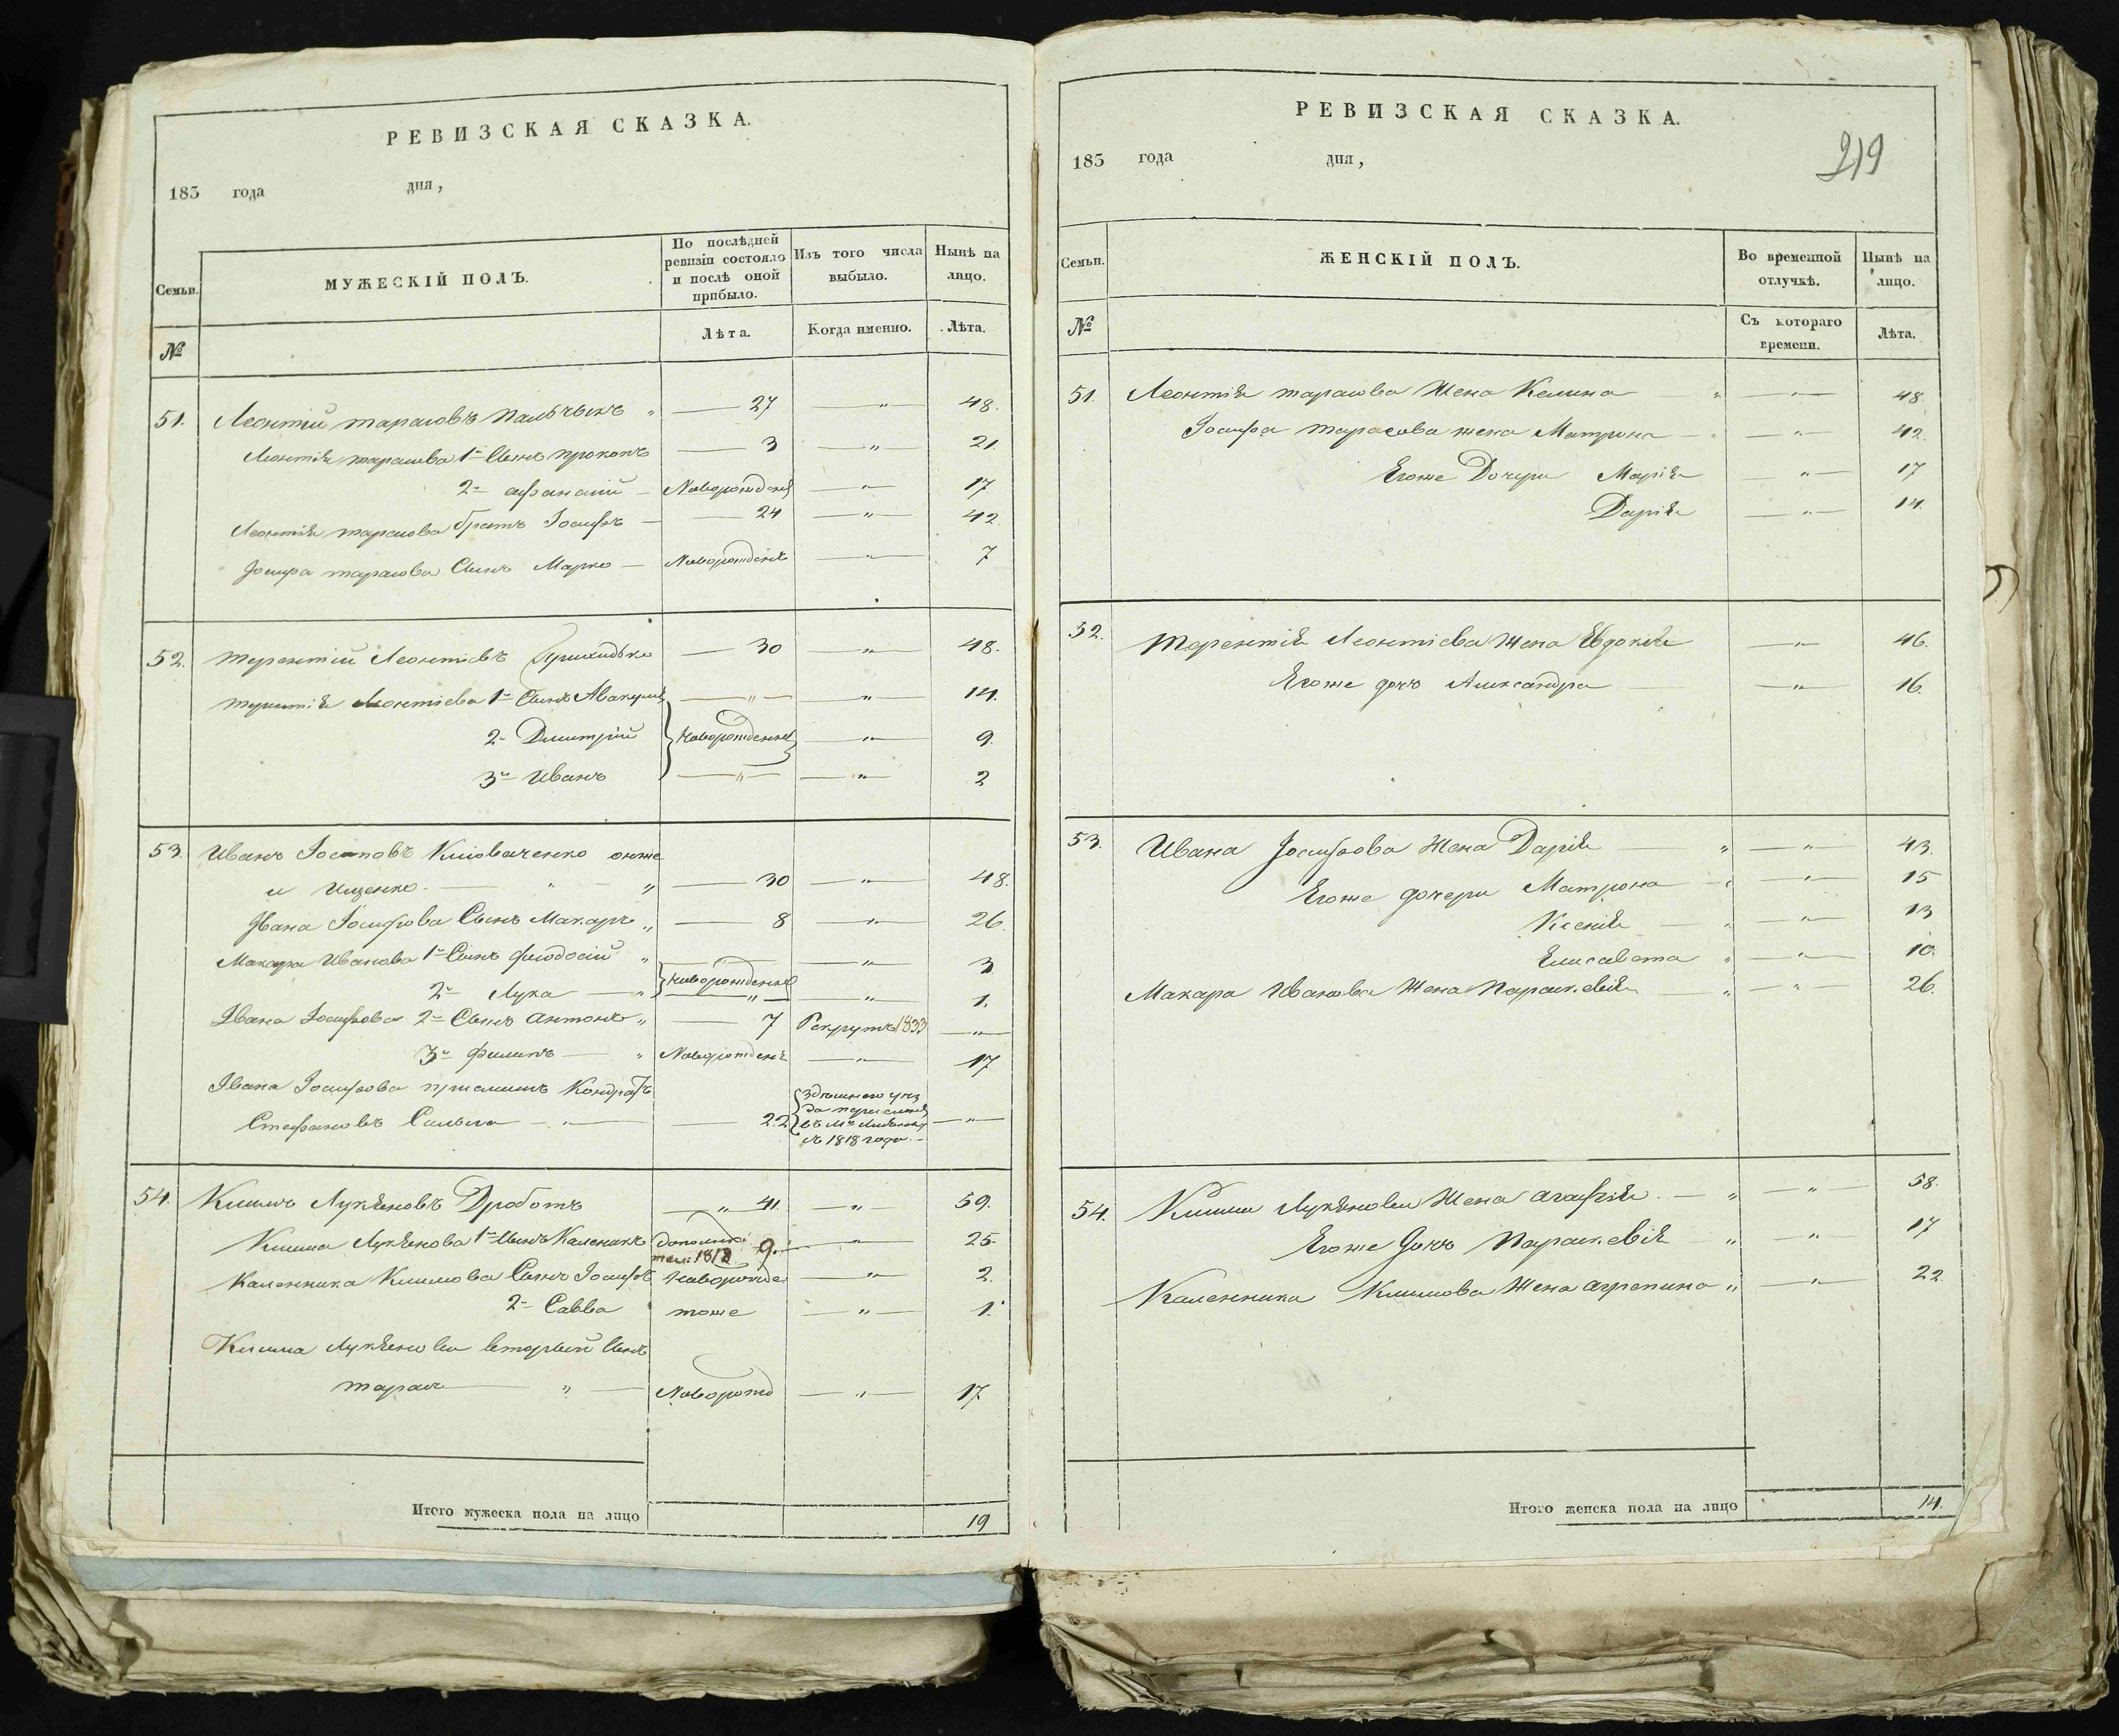 РЕВИЗСКАЯ СКАЗКА.
183 года дня,
Семьи.
МУЖЕСКІЙ ПОЛЪ.
По послѣдней ревизіи состояло и послѣ оной прибыло.
Изъ того числа выбыло.
Нынѣ на лицо.
№
Лѣта.
Когда именно.
Лѣта.
51. Леонтій тарасовъ 27 " 48.
Леонтія тарасова 1й Сынъ прокопъ 3 " 21.
2й афанасій Новорожден " 17
Леонтія тарасова братъ Іосифъ 24 " 42.
Іосифа тарасова Сынъ Марко Новорожденъ " 7
52. терентій Леонтіевъ Прихидько 30 " 48.
терентія Леонтіева 1й Сынъ Авакумъ " " 14.
2й Дмитрій Новорожденны " 9.
3й Иванъ " " 2
53. Иванъ Іосиповъ онже
и Ищенко " " 30 " 48.
Ивана Іосифова Сынъ Макаръ " 8 " 26.
Макара Иванова 1й Сынъ феодосій " " 3
2й Лука " Новорожденны " 1.
Ивана Іосифова 2й Сынъ антонъ " 7 Рекрутъ 1833 "
3й филипъ " Новорожденъ " 17
Ивана Іосифова пріемышъ Кондратъ
Стефановъ " 22 здешнего уез
да перечислен
въ Мо
съ 1818 года "
54. Климъ Лукяновъ Дроботъ " 41. " 59.
Клима Лукянова 1й Сынъ Каленикъ дополнит 1818 9. " 25
Каленника Климова Сынъ Іосифъ Новорожде " 2.
2й Савва тоже " 1.
Клима Лукянова вторый Сынъ
тарасъ " Новорожд " 17
Итого мужеска пола на лицо 19
РЕВИЗСКАЯ СКАЗКА.
219
183 года дня,
Семьи.
ЖЕНСКІЙ ПОЛЪ.
Во временной отлучкѣ.
Нынѣ на лицо.
№
Съ котораго времени.
Лѣта.
51. Леонтія тарасова Жена Келина " " 48.
Іосифа тарасова жена Матрона " 42.
Егоже Дочери Марія " 17
Дарія " 14.
52. терентія Леонтіева Жена Евдокія " 46.
Егоже дочь Александра " 16.
53. Ивана Іосифова Жена Дарія " " 43.
Егоже дочери Матрона " " 15
Ксенія " " 13
Елисавета " " 10.
Макара Иванова Жена Параскевія " " 26.
54. Клима Лукянова Жена агафія " " 58.
Егоже Дочь Параскевія " " 17
Каленника Климова Жена агрепина " " 22.
Итого женска пола на лицо 14.